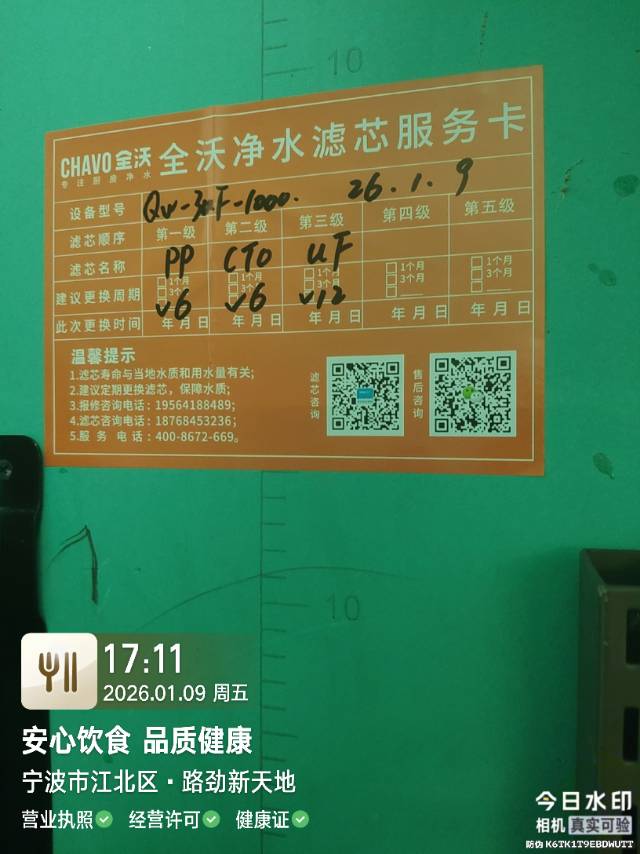 10
CHAVO 全沃 全沃净水滤芯服务卡
专注厨房净水
设备型号 QW-30F-1000. 26.1.9
滤芯顺序 第一级 第二级 第三级 第四级 第五级
滤芯名称 PP CTO UF
建议更换周期 1个月 3个月 v6 1个月 3个月 v6 1个月 3个月 v12 1个月 3个月 1个月 3个月
此次更换时间 年 月 日 年 月 日 年 月 日 年 月 日 年 月 日
温馨提示
1.滤芯寿命与当地水质和用水量有关;
2.建议定期更换滤芯，保障水质;
3.报修咨询电话: 19564188489;
4.滤芯咨询电话: 18768453236;
5.服务电话: 400-8672-669。
滤芯咨询
售后咨询
10
17:11
2026.01.09 周五
安心饮食 品质健康
宁波市江北区·路劲新天地
营业执照 经营许可 健康证
今日水印
相机 真实可验
防伪 K6TK1T9EBDWUTT